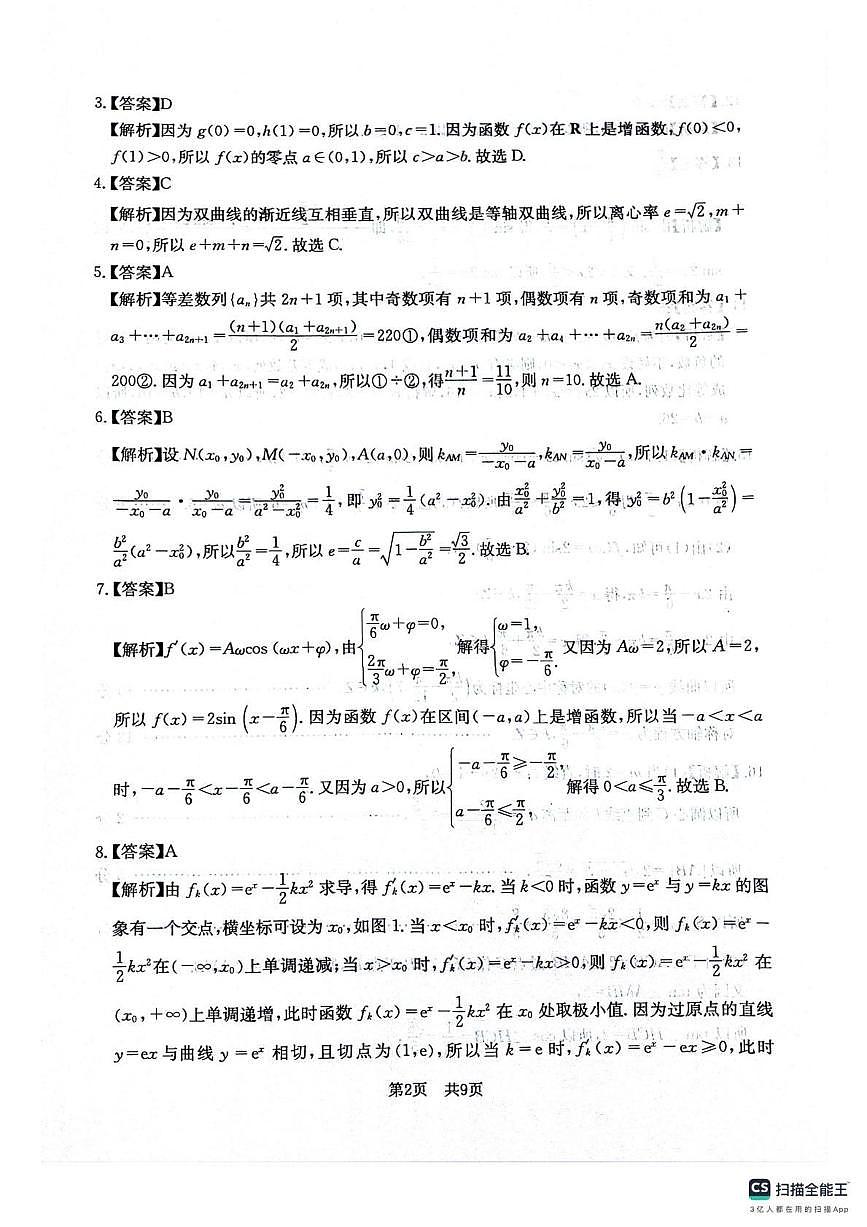 3.【答案】D
【解析】因为 g(0)=0,h(1)=0,所以 b=0,c=1.因为函数 f(x)在 R 上是增函数,f(0)<0,
f(1)>0,所以 f(x)的零点 a∈(0,1),所以 c>a>b.故选 D.
4.【答案】C
【解析】因为双曲线的渐近线互相垂直,所以双曲线是等轴双曲线,所以离心率 e=√2,m+
n=0,所以 e+m+n=√2.故选 C.
5.【答案】A
【解析】等差数列{aₙ}共 2n+1 项,其中奇数项有 n+1 项,偶数项有 n 项,奇数项和为 a₁+
a₃+…+a₂ₙ₊₁=(n+1)(a₁+a₂ₙ₊₁)/2=220①,偶数项和为 a₂+a₄+…+a₂ₙ=n(a₂+a₂ₙ)/2=
200②.因为 a₁+a₂ₙ₊₁=a₂+a₂ₙ,所以①÷②,得(n+1)/n=11/10,则 n=10.故选 A.
6.【答案】B
【解析】设 N(x₀,y₀),M(-x₀,y₀),A(a,0),则 k_AM=y₀/(-x₀-a),k_AN=y₀/(x₀-a),所以 k_AM·k_AN=
y₀/(-x₀-a)·y₀/(x₀-a)=y₀²/(a²-x₀²)=1/4,即 y₀²=1/4(a²-x₀²).由x₀²/a²+y₀²/b²=1,得 y₀²=b²(1-x₀²/a²)=
b²/a²(a²-x₀²),所以b²/a²=1/4,所以 e=c/a=√(1-b²/a²)=√3/2.故选 B.
7.【答案】B
【解析】f′(x)=Aωcos(ωx+φ),由{π/6ω+φ=0, 2π/3ω+φ=π/2, 解得{ω=1, φ=-π/6. 又因为 Aω=2,所以 A=2,
所以 f(x)=2sin(x-π/6).因为函数 f(x)在区间(-a,a)上是增函数,所以当-a<x<a
时,-a-π/6<x-π/6<a-π/6.又因为 a>0,所以{-a-π/6≥-π/2, a-π/6≤π/2, 解得 0<a≤π/3.故选 B.
8.【答案】A
【解析】由 fₖ(x)=eˣ-1/2kx² 求导,得 fₖ′(x)=eˣ-kx.当 k<0 时,函数 y=eˣ 与 y=kx 的图
象有一个交点,横坐标可设为 x₀,如图 1.当 x<x₀ 时,fₖ′(x)=eˣ-kx<0,则 fₖ(x)=eˣ-
1/2kx²在(-∞,x₀)上单调递减;当 x>x₀ 时,fₖ′(x)=eˣ-kx>0,则 fₖ(x)=eˣ-1/2kx² 在
(x₀,+∞)上单调递增,此时函数 fₖ(x)=eˣ-1/2kx² 在 x₀ 处取极小值.因为过原点的直线
y=ex 与曲线 y=eˣ 相切,且切点为(1,e),所以当 k=e 时,fₖ′(x)=eˣ-ex≥0,此时
第2页 共9页
CS 扫描全能王™
3亿人都在用的扫描App